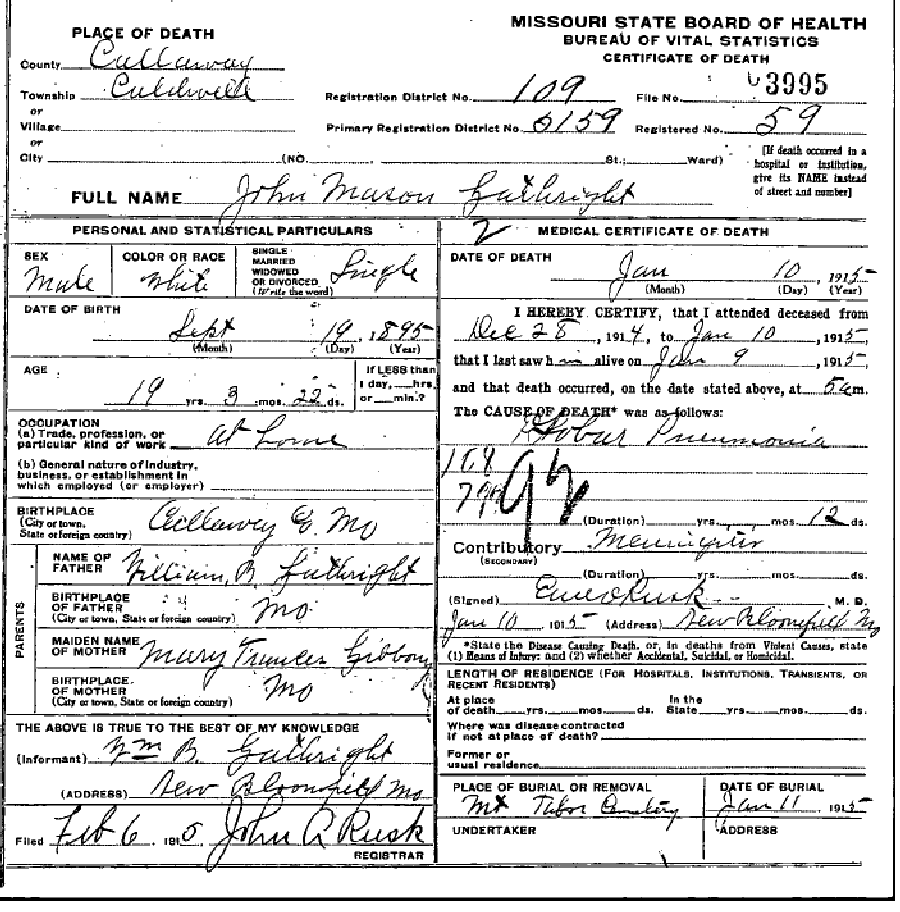 MISSOURI STATE BOARD OF HEALTH
BUREAU OF VITAL STATISTICS
CERTIFICATE OF DEATH
PLACE OF DEATH
County Callaway
Township Caldwell
or
Village
or
City (NO. St.; Ward)
Registration District No. 109 File No. 3995
Primary Registration District No. 5159 Registered No. 59
[If death occurred in a
hospital or institution,
give its NAME instead
of street and number]
FULL NAME John Mason Gathright
PERSONAL AND STATISTICAL PARTICULARS
SEX Male
COLOR OR RACE White
SINGLE
MARRIED
WIDOWED
OR DIVORCED
(Write the word) Single
DATE OF BIRTH
Sept 19, 1895
(Month) (Day) (Year)
AGE
19 yrs. 3 mos. 22 ds.
If LESS than
1 day, hrs.
or min.?
OCCUPATION
(a) Trade, profession, or
particular kind of work At Home
(b) General nature of industry,
business, or establishment in
which employed (or employer)
BIRTHPLACE
(City or town,
State or foreign country) Callaway Co Mo
PARENTS
NAME OF
FATHER William B. Gathright
BIRTHPLACE
OF FATHER
(City or town, State or foreign country) Mo
MAIDEN NAME
OF MOTHER Mary Frances Gibbony
BIRTHPLACE
OF MOTHER
(City or town, State or foreign country) Mo
THE ABOVE IS TRUE TO THE BEST OF MY KNOWLEDGE
(Informant) Wm B. Gathright
(ADDRESS) New Bloomfield Mo
Filed Feb 6 1915 John A Rusk
REGISTRAR
2 MEDICAL CERTIFICATE OF DEATH
DATE OF DEATH
Jan 10, 1915
(Month) (Day) (Year)
I HEREBY CERTIFY, that I attended deceased from
Dec 28, 1914, to Jan 10, 1915
that I last saw him alive on Jan 9, 1915
and that death occurred, on the date stated above, at 5 a m.
The CAUSE OF DEATH* was as follows:
Lobar Pneumonia
92
(Duration) yrs. mos. 12 ds.
Contributory Meningitis
(SECONDARY)
(Duration) yrs. mos. ds.
(Signed) Rusk M. D.
Jan 10 1915 (Address) New Bloomfield Mo
*State the Disease Causing Death, or, in deaths from Violent Causes, state
(1) Means of Injury; and (2) whether Accidental, Suicidal, or Homicidal.
LENGTH OF RESIDENCE (FOR HOSPITALS, INSTITUTIONS, TRANSIENTS, OR
RECENT RESIDENTS)
At place In the
of death yrs. mos. ds. State yrs. mos. ds.
Where was disease contracted
if not at place of death?
Former or
usual residence
PLACE OF BURIAL OR REMOVAL
Mt Tabor Cemetery
DATE OF BURIAL
Jan 11, 1915
UNDERTAKER
ADDRESS